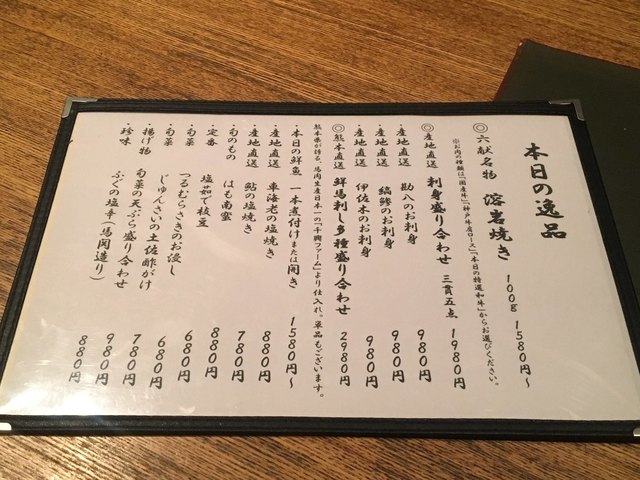 本日の逸品
◎六献名物 溶岩焼き 100g 1580円～
※お肉の種類は「国産牛」「神戸牛肩ロース」「本日の特選和牛」からお選びください。
◎産地直送 刺身盛り合わせ 三貫五点 1980円
・産地直送 勘八のお刺身 980円
・産地直送 縞鯵のお刺身 980円
・産地直送 伊佐木のお刺身 980円
◎熊本直送 鮮馬刺し多種盛り合わせ 2980円
熊本県が誇る、馬肉生産日本一の「千興ファーム」より仕入れ。単品もございます。
・本日の鮮魚 一本煮付けまたは開き 1580円～
・産地直送 車海老の塩焼き 880円
・産地直送 鮎の塩焼き 780円
・旬のもの はも南蛮 880円
・定番 塩茹で枝豆 680円
・旬菜 つるむらさきのお浸し 680円
・旬菜 じゅんさいの土佐酢がけ 780円
・揚げ物 旬菜の天ぷら盛り合わせ 980円
・珍味 ふぐの塩辛(馬関造り) 880円